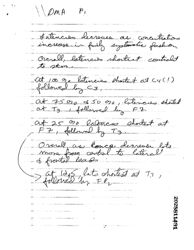 DMA P1
Latencies decrease as concentrations
increase in fairly systematic fashion
Overall, latencies shortest
to stim.
At 100% latencies shortest at C4(1)
followed by C3.
At 75% & 50%, latencies shortest
at T3, followed by F7.
At 25% latencies shortest at
F7, followed by T3
Overall, as conc decrease lats
move from central to lateral
& frontal leads
At 100% lats shortest at T3,
followed by